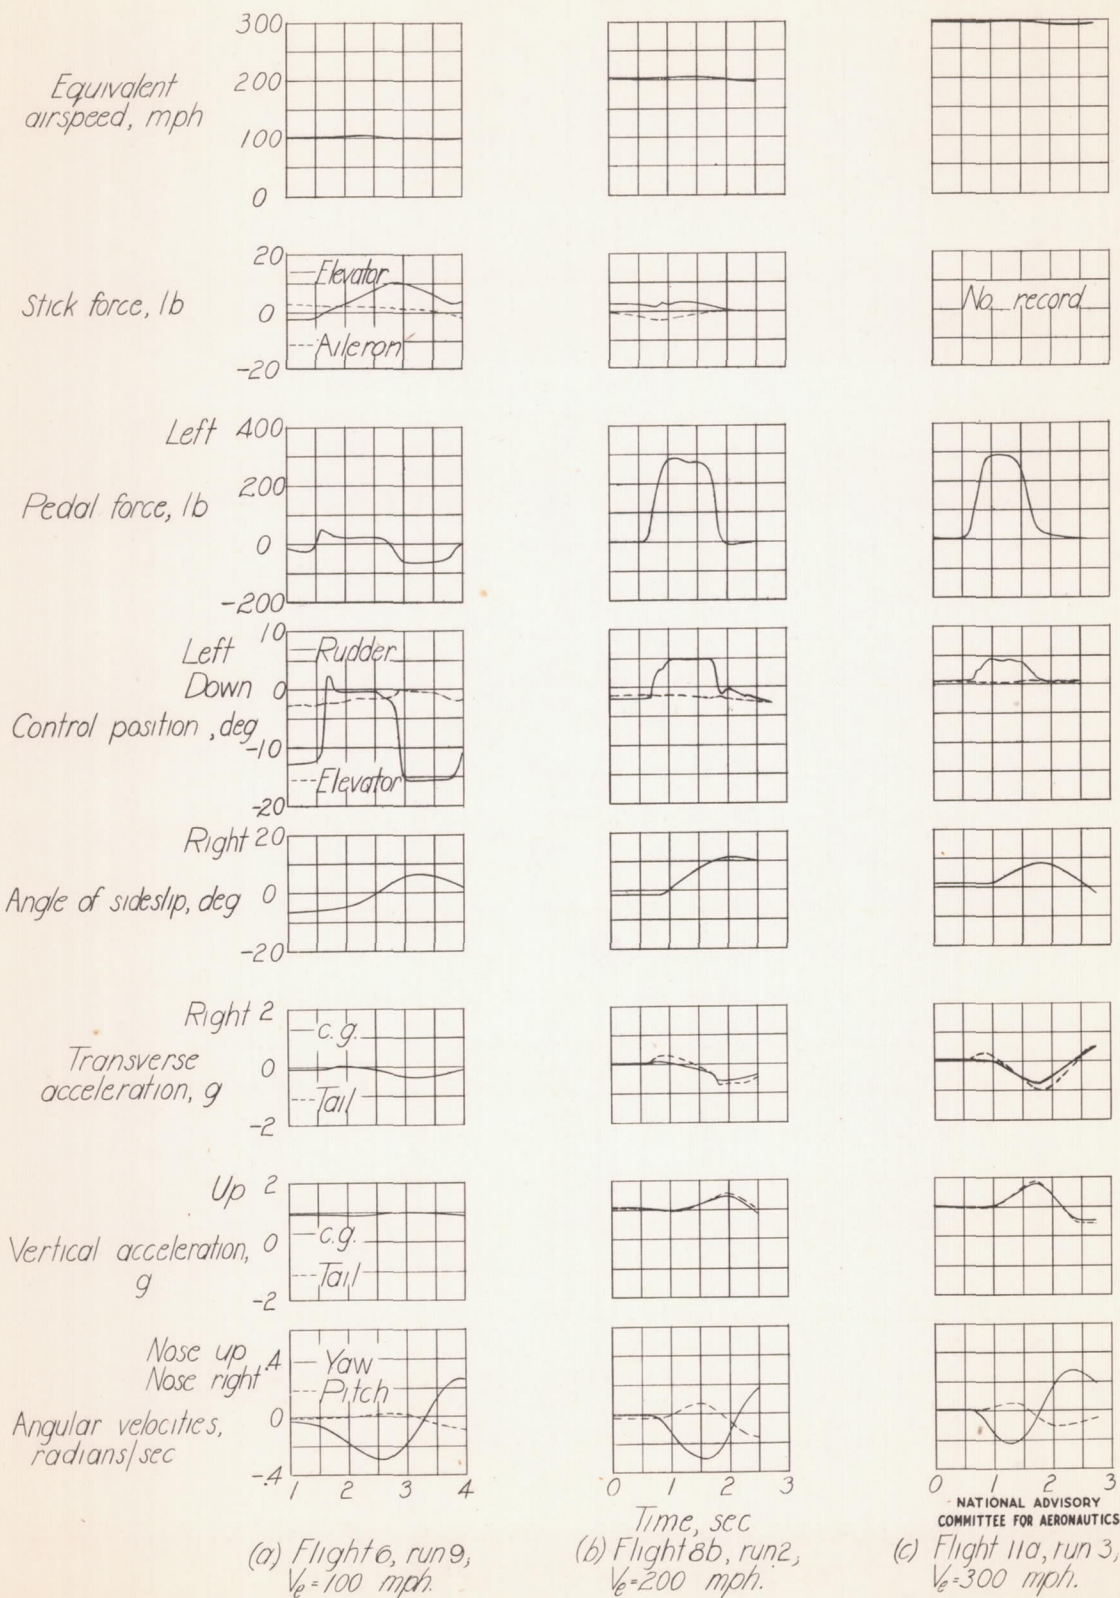 300
Equivalent
airspeed, mph
200
100
0
Stick force, lb
20
Elevator
0
Aileron
-20
No record
Left 400
Pedal force, lb
200
0
-200
10
Left
Rudder
Down 0
Control position, deg
-10
Elevator
-20
Right 20
Angle of sideslip, deg 0
-20
Right 2
c.g.
Transverse
acceleration, g
0
Tail
-2
Up 2
Vertical acceleration, 0
g
c.g.
Tail
-2
Nose up
Nose right .4
Yaw
Pitch
Angular velocities,
radians/sec
0
-.4
1 2 3 4
0 1 2 3
0 1 2 3
Time, sec
NATIONAL ADVISORY
COMMITTEE FOR AERONAUTICS
(a) Flight 6, run 9,
Ve=100 mph.
(b) Flight 8b, run 2,
Ve=200 mph.
(c) Flight 11a, run 3,
Ve=300 mph.